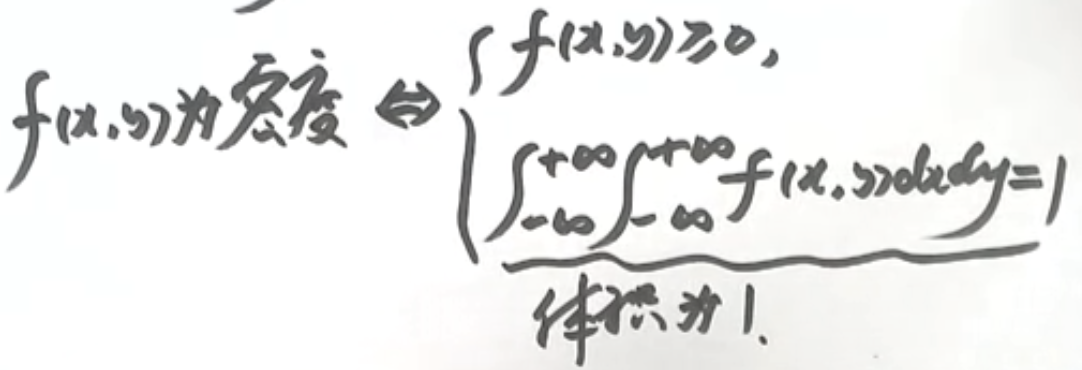 f(x,y)为密度 ⇔ { f(x,y)≥0,
∫_{-∞}^{+∞}∫_{-∞}^{+∞} f(x,y)dxdy=1
体积为1.